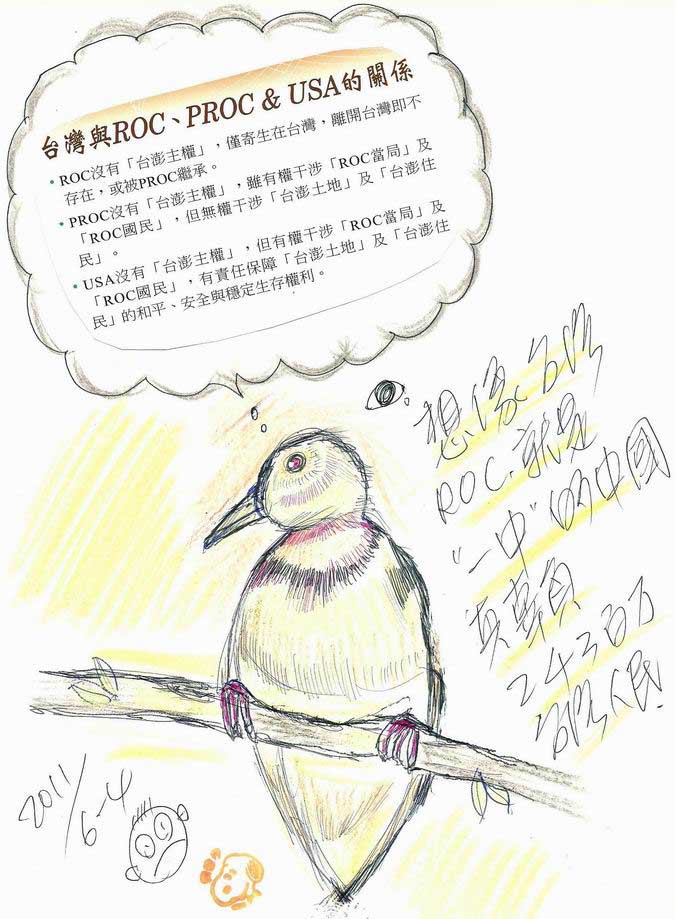 台灣與ROC、PROC & USA的關係
• ROC沒有「台澎主權」，僅寄生在台灣，離開台灣即不
存在，或被PROC繼承。
• PROC沒有「台澎主權」，雖有權干涉「ROC當局」及
「ROC國民」，但無權干涉「台澎土地」及「台澎住
民」。
• USA沒有「台澎主權」，但有權干涉「ROC當局」及
「ROC國民」，有責任保障「台澎土地」及「台澎住
民」的和平、安全與穩定生存權利。
想像台灣
ROC.就是
"一中"的中國
真辜負
2430萬
台灣人民!
2011/6-4